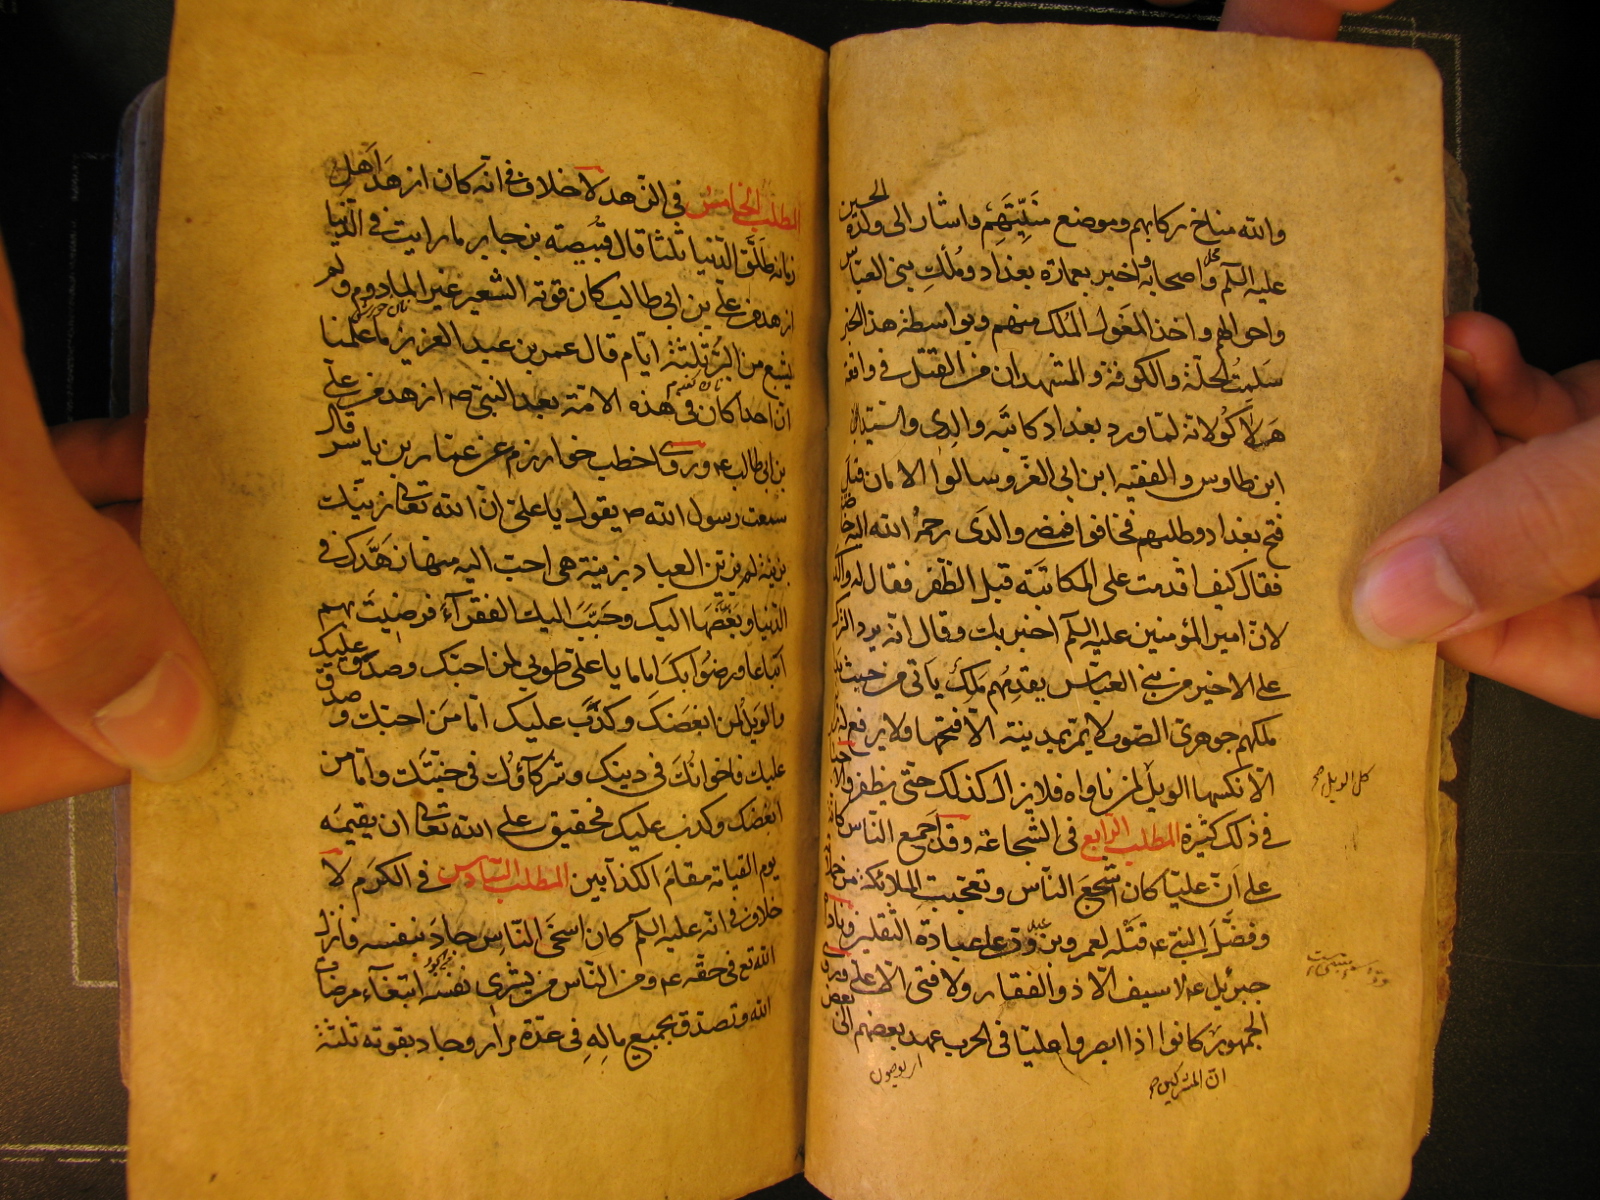 والله مناخ ركابهم وموضع منيتهم واشار الى ولده الحسين
عليه السلم واصحابه واخبر بعمارة بغداد وملك بنى العباس
واحوالهم واخذ المغول الملك منهم وبواسطة هذا الخبر
سلمت الحلة والكوفة والمشهدان من القتل فى واقعة
هولاكو لانه لما ورد بغداد كاتبه والدى والسيد ابن
ابن طاوس والفقيه ابن ابى العز وسالوا الامان قبل
فتح بغداد وطلبهم فخافوا فمضى والدى رحمه الله اليه خاصة
فقال كيف اقدمت على المكاتبة قبل الظفر فقال له والدى
لان امير المؤمنين عليه السلم اخبر بك وقال انه يرد الترك
على الاخير من بنى العباس يقدمهم ملك ياتى من حيث بدا
ملكهم جوهرى الصوت لا يمر بمدينة الا فتحها ولا يرفع له راية
الا نكسها الويل لمن ناواه فلا يزال كذلك حتى يظفر والاخبار
فى ذلك كثيرة المطلب الرابع فى الشجاعة وقد اجمع الناس كافة
على ان عليا كان اشجع الناس وتعجبت الملائكة من حملاته
وفضل النبى ص قتله لعمرو بن عبد ود على عبادة الثقلين ونادى
جبرئيل ع لا سيف الا ذو الفقار ولا فتى الا على وروى
الجمهور كانوا اذا ابصروا عليا فى الحرب عهد بعضهم الى بعض
كل الويل صح
ان المشركين صح
اى يوصون
المطلب الخامس فى الزهد لا خلاف فى انه كان ازهد اهل
زمانه طلق الدنيا ثلثا قال قبيصة بن جابر ما رايت فى الدنيا
ازهد من على بن ابى طالب كان قوته الشعير غير المادوم ولم
يشبع من البر ثلثة ايام قال عمر بن عبد العزيز ما علمنا
ان احدا كان فى هذه الامة بعد النبى ص ازهد من على
بن ابى طالب ع وروى اخطب خوارزم عن عمار بن ياسر قال
سمعت رسول الله ص يقول يا على ان الله تعالى زينك
بزينة لم يزين العباد بزينة هى احب اليه منها زهدك فى
الدنيا وبغضها اليك وحبب اليك الفقراء فرضيت بهم
اتباعا ورضوا بك اماما يا على طوبى لمن احبك وصدق عليك
والويل لمن ابغضك وكذب عليك اما من احبك وصدق
عليك فاخوانك فى دينك وشركاؤك فى جنتك واما من
ابغضك وكذب عليك فحقيق على الله تعالى ان يقيمه
يوم القيامة مقام الكذابين المطلب السادس فى الكرم لا
خلاف فى انه عليه السلم كان اسخى الناس جاد بنفسه فانزل
الله تع فى حقه ع ومن الناس من يشرى نفسه ابتغاء مرضات
الله وتصدق بجميع ماله فى عدة مرار وجاد بقوته ثلثة